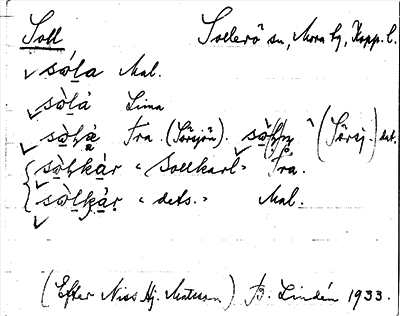 Soll Sollerö sn, Mora tg, Kopp. l.
sò̱la Mal.
sò̱là Lima
sò̱là̱ Tra. (Sörsjön). (Sörsj.) dat.
sò̱lkár "Sollkarl" Tra.
sò̱lkár "dets." Mal.
(Efter Niss Hj. Matsson) B. Lindén 1933.